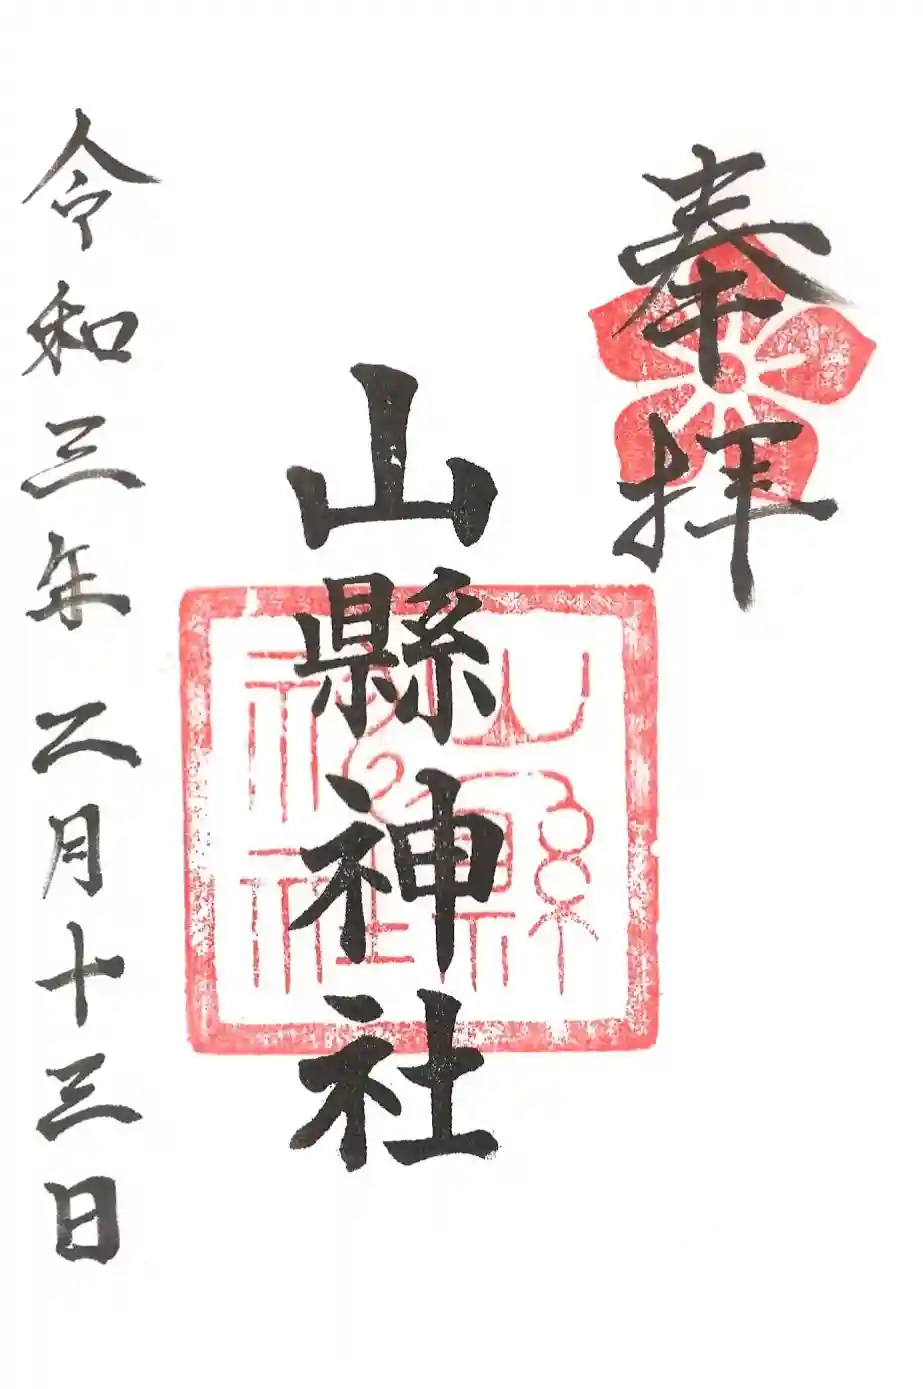 奉拝
山縣神社
山縣
神社
令和三年二月十三日